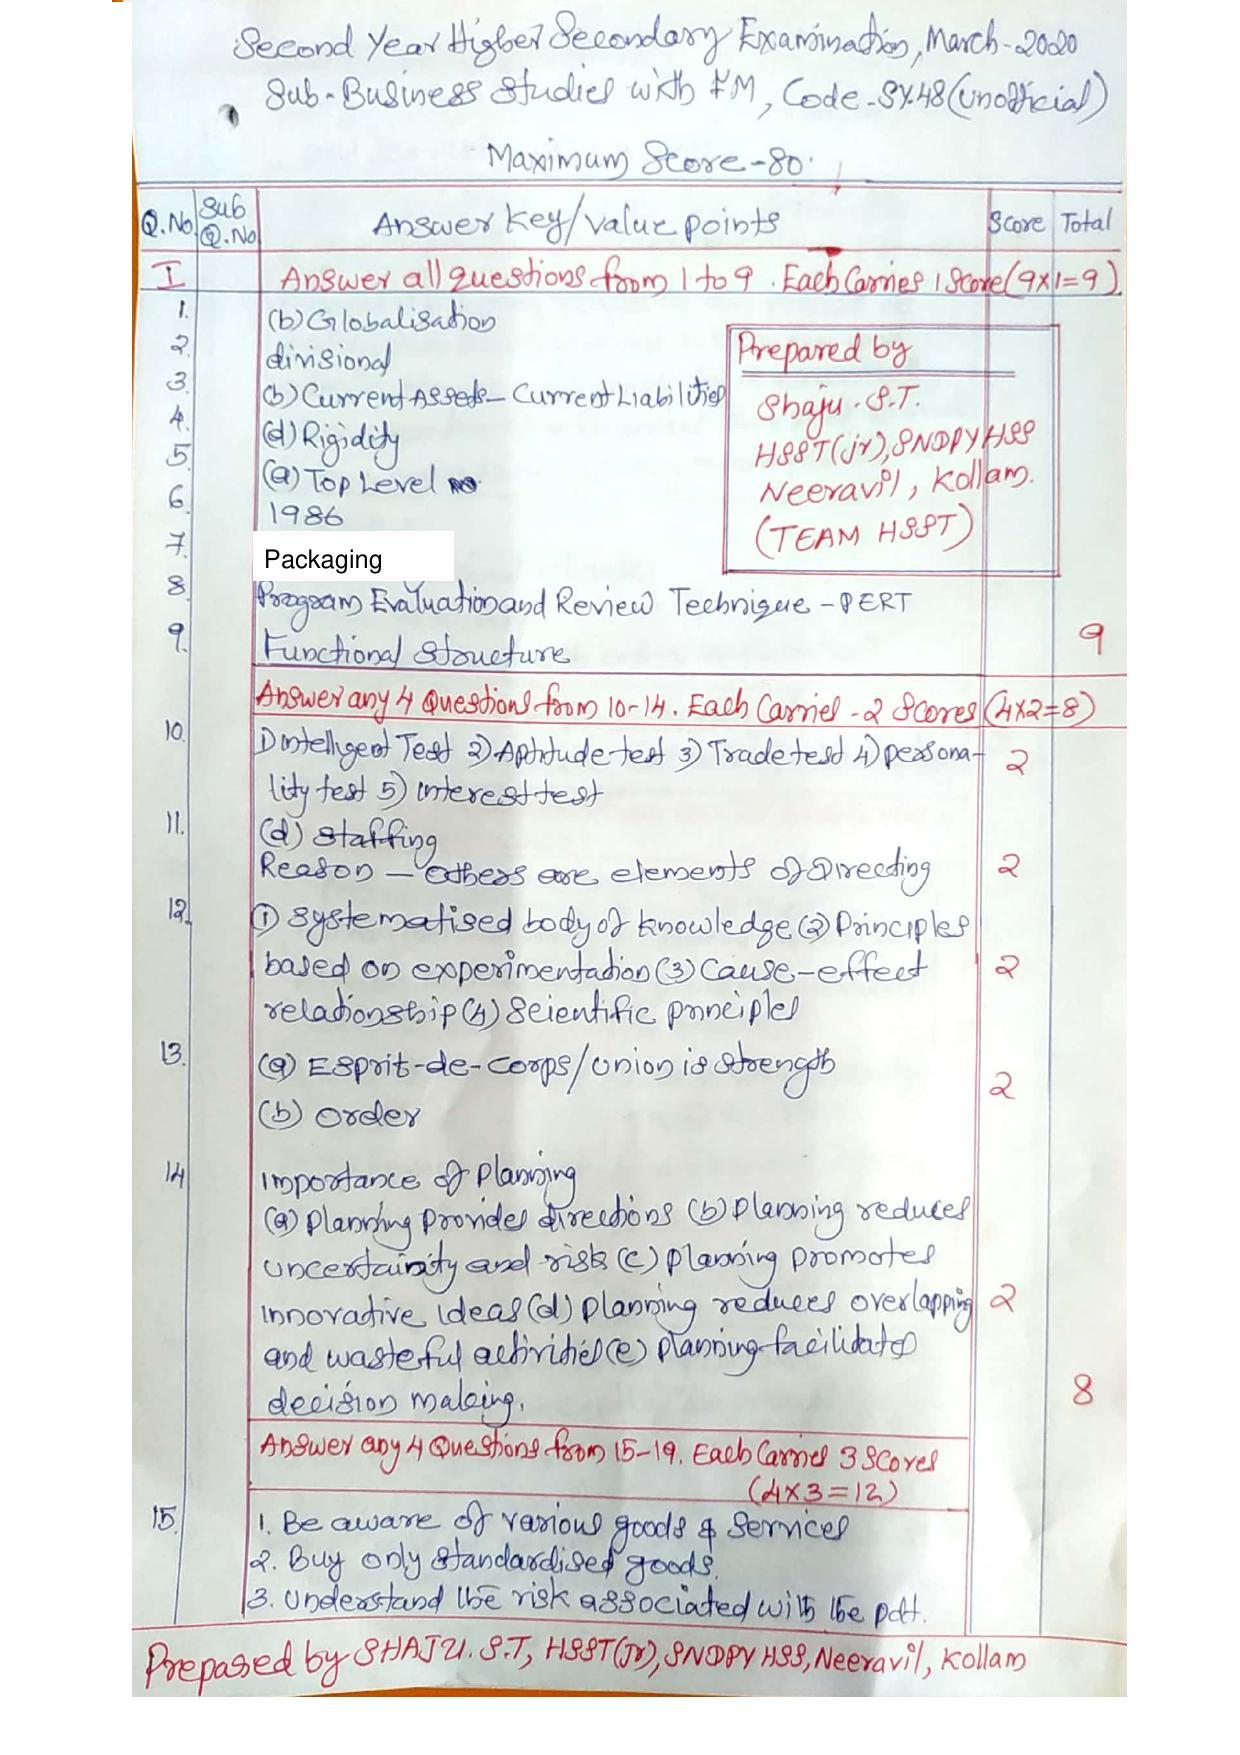 Second Year Higher Secondary Examination, March-2020
Sub-Business Studies with FM, Code-SY.48(Unofficial)
Maximum Score-80.
Q.No Sub Q.No Answer Key/Value points Score Total
I Answer all questions from 1 to 9. Each Carries 1 Score (9x1=9).
1. (b) Globalisation
2. divisional
3. (b) Current Assets - Current Liabilities
4. (d) Rigidity
5. (a) Top Level
6. 1986
7. Packaging
Prepared by
Shaju. S.T.
HSST(jr), SNDPYHSS
Neeravil, Kollam.
(TEAM HSST)
8. Program Evaluation and Review Technique - PERT
9. Functional Structure 9
Answer any 4 Questions from 10-14. Each Carries - 2 Scores (4x2=8)
10. 1) Intelligent Test 2) Aptitude test 3) Trade test 4) persona- 2
lity test 5) interest test
11. (d) Staffing
Reason - others are elements of Directing 2
12. (1) Systematised body of knowledge (2) Principles
based on experimentation (3) Cause-effect 2
relationship (4) Scientific principles
13. (a) Esprit-de-corps/union is strength
2
(b) order
14 Importance of Planning
(a) Planning Provides directions (b) Planning reduces
uncertainity and risk (c) Planning promotes
innovative ideas (d) Planning reduces overlapping 2
and wasteful activities (e) Planning facilitates
decision making. 8
Answer any 4 Questions from 15-19. Each Carries 3 Scores
(4x3=12)
15. 1. Be aware of various goods & Services
2. Buy only standardised goods.
3. Understand the risk associated with the pdt.
Prepared by SHAJU. S.T, HSST(Jr), SNDPY HSS, Neeravil, Kollam